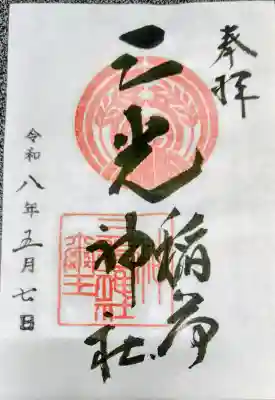 奉拝
三光稲荷神社
令和八年五月七日